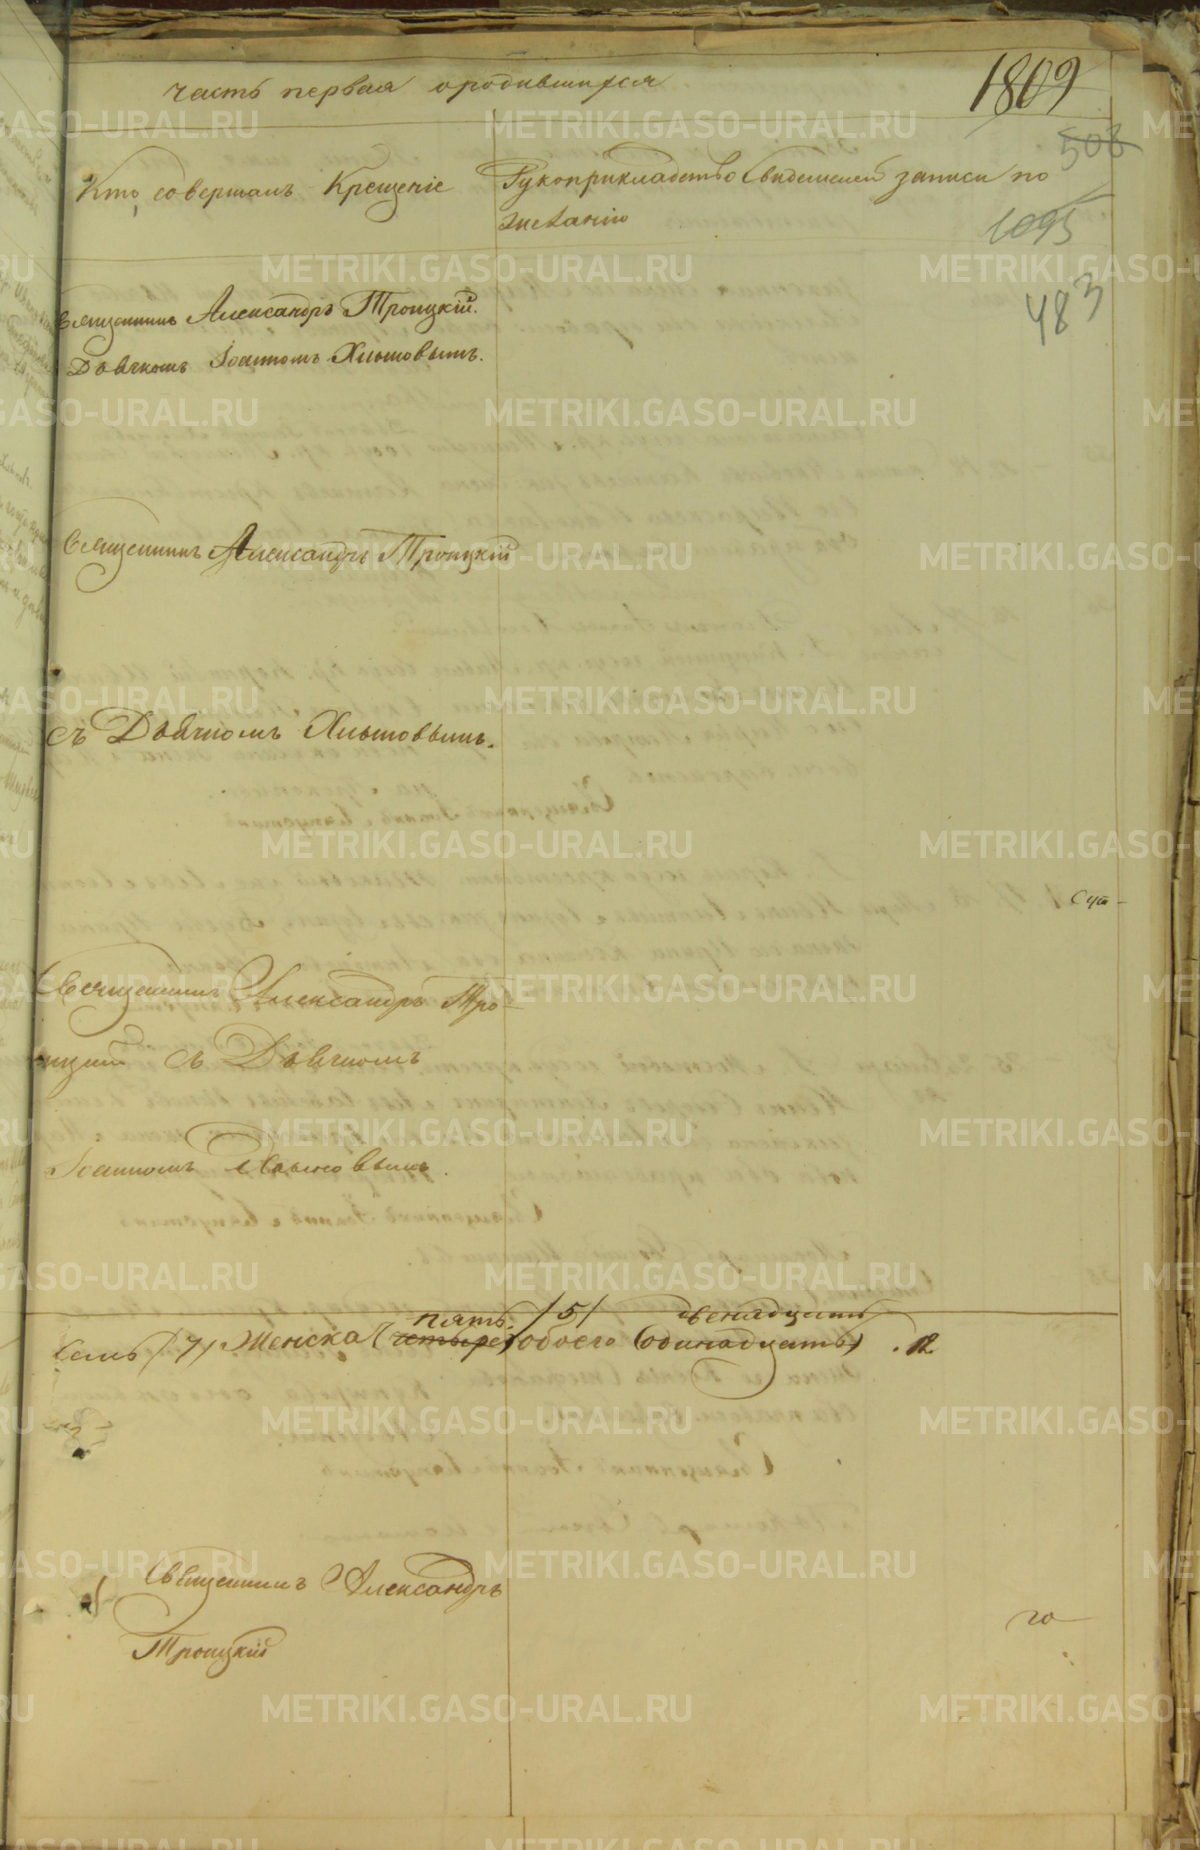 часть первая о родившихся
1809
508
Кто совершалъ Крещеніе
Рукоприкладство свидетелей записи по
желанію
1095
483
Священникъ Александръ Троицкій.
Дьячкомъ Іоанномъ Хлыновымъ.
Священникъ Александръ Троицкій
съ Дьячкомъ Хлыновымъ.
Священникъ Александръ Тро-
ицкий съ Дьячкомъ
Іоанномъ
пять /5/ двенадцать
семь /7/ Женска (четыре) обоего (одинадцать) . 12
Священникъ Александръ
Троицкій
METRIKI.GASO-URAL.RU